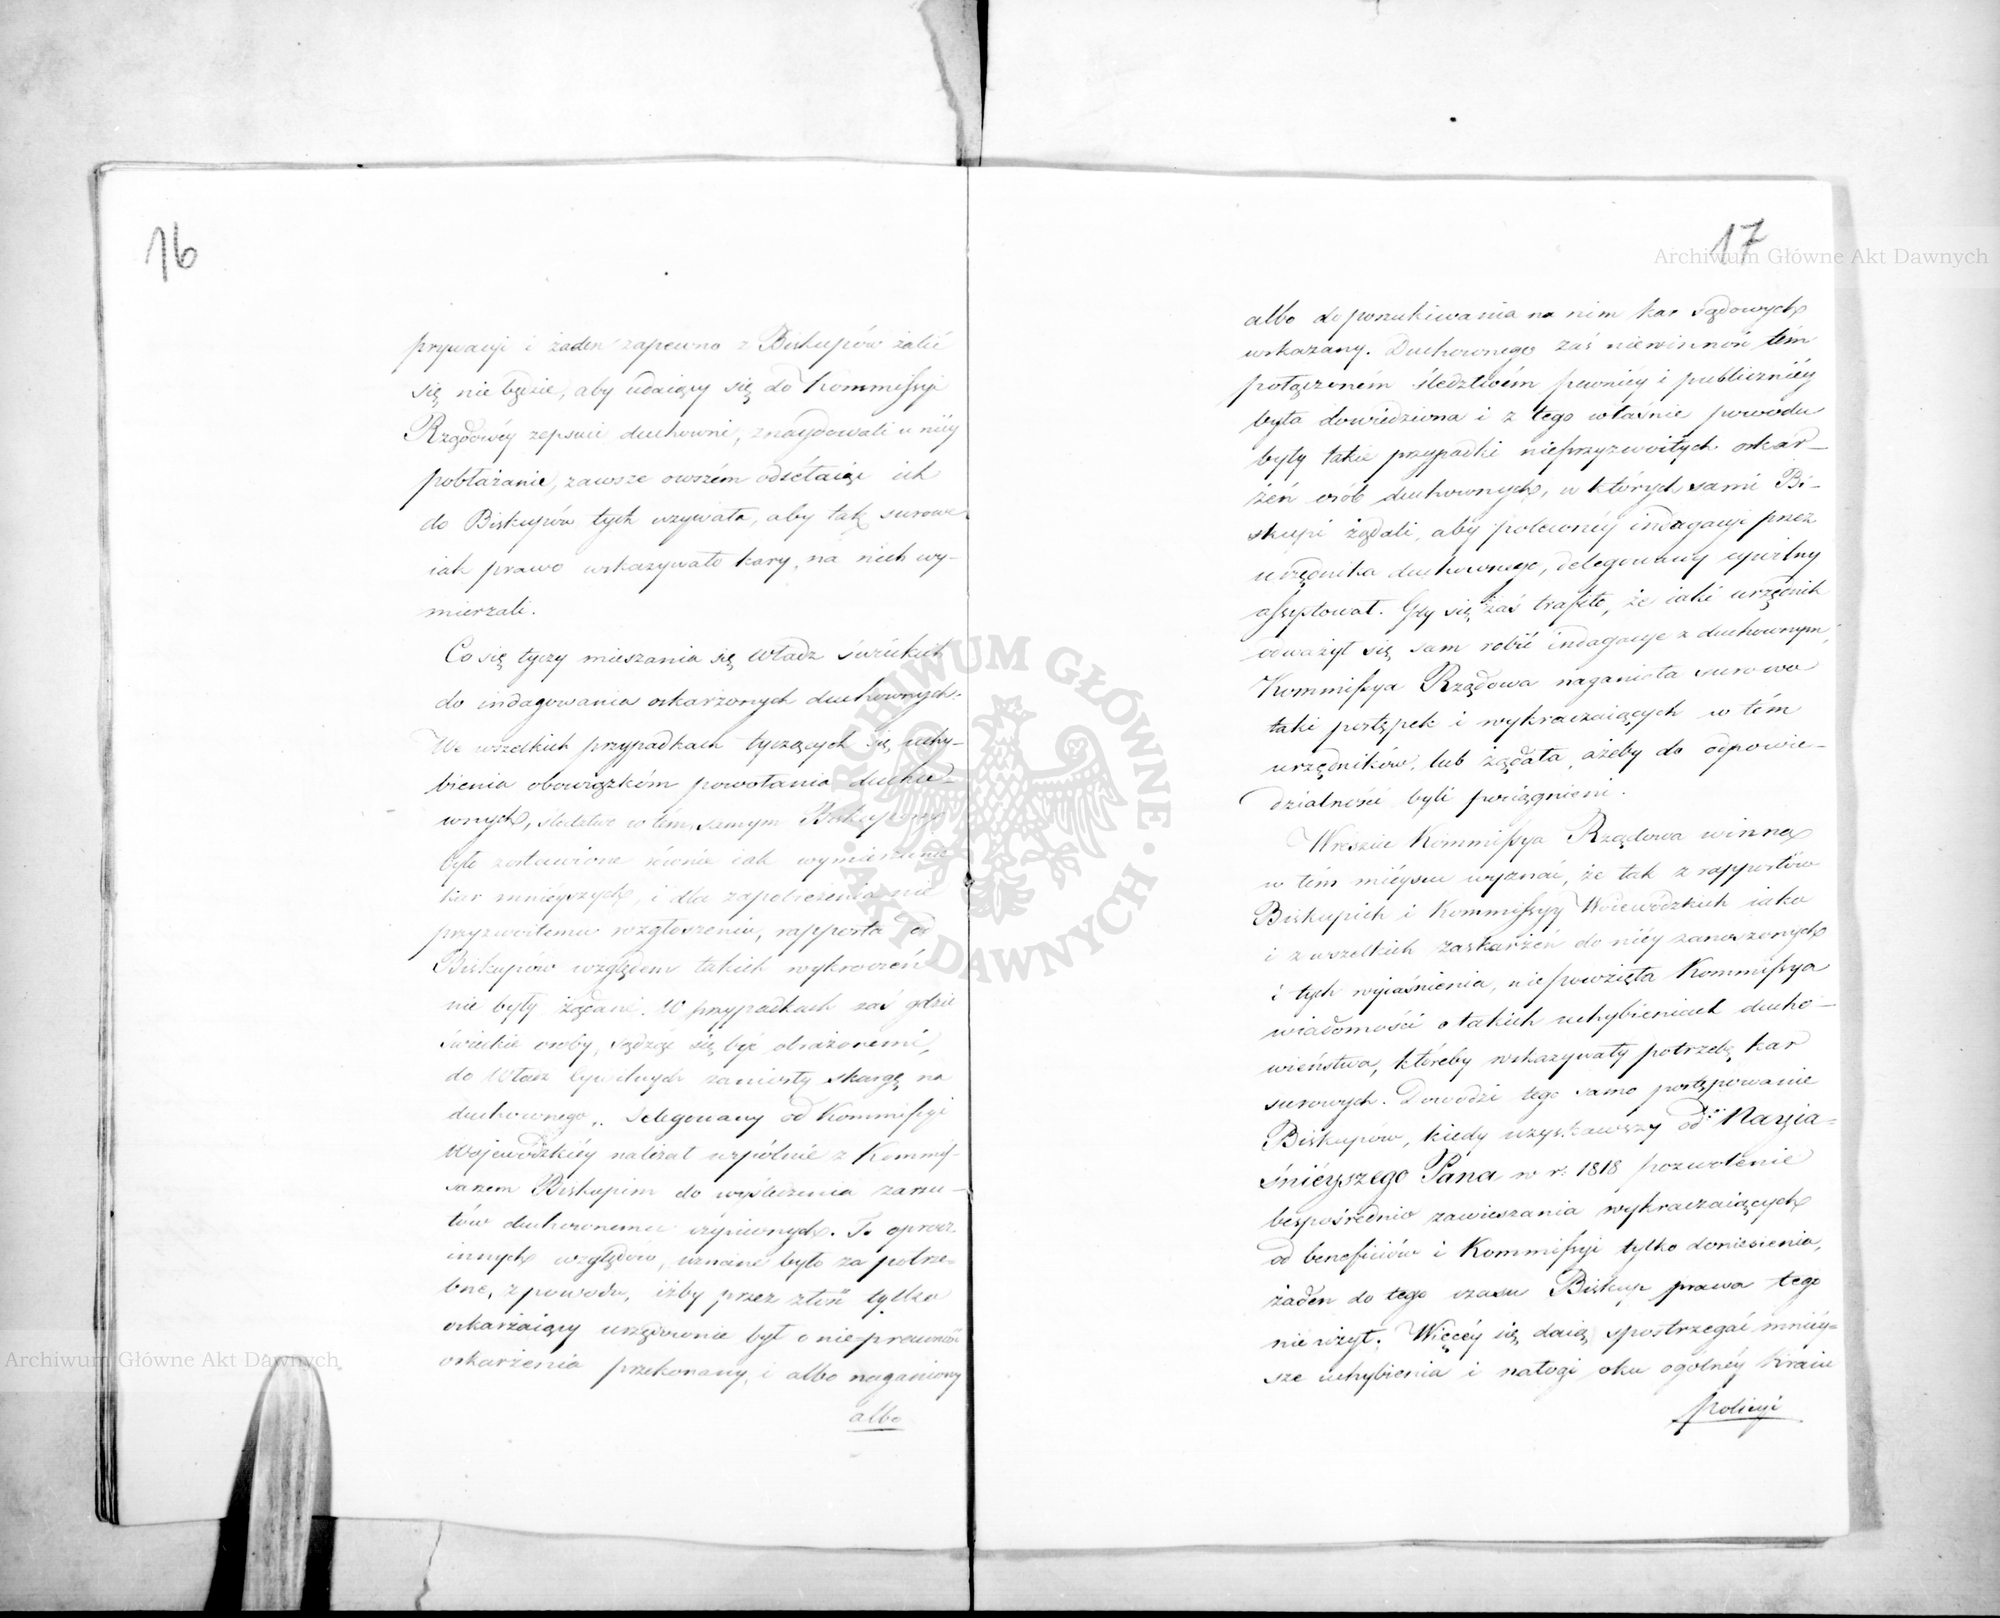 16
prywacyi i żaden zapewno z Biskupów żalić
się nie będzie, aby udaiący się do Kommissyi
Rządowéy zepsuci duchowni, znaydowali u niéy
pobłażanie, zawsze owszém odsełaiąc ich
do Biskupów tych wzywała, aby tak surowe
iak prawo wskazywało kary, na nich wy-
mierzali.
Co się tyczy mieszania się Władz świeckich
do indagowania oskarżonych duchownych.
We wszelkich przypadkach tyczących się uchy-
bienia obowiązkóm powołania ducho-
wnych, śledztwo w tem samym Biskupom
było zostawione równie iak wymierzanie
kar mnieyszych, i dla zapobieżenia nie
przyzwoitemu rozgłoszeniu, rapporta od
Biskupów względem takich wykroczeń
nie były żądane. W przypadkach zaś gdzie
świeckie osoby, sądząc się być obrażonemi,
do Władz Cywilnych zaniosły skargę na
duchownego, delegowany od Kommissyi
Wojewódzkiéy należał wspólnie z Kommis-
sarzem Biskupim do wyśledzenia zarzu-
tów duchownemu czynionych. To oprócz
innych względów, uznane było za potrze-
bne, z powodu, iżby przez złość tylko
oskarżaiący urzędownie był o nie-prawności
oskarżenia przekonany, i albo naganiony
albo
17
albo do poszukiwania na nim kar sądowych
wskazany. Duchownego zaś niewinność tém
połączoném śledztwém pewniéy i publiczniéy
była dowiedziona i z tego właśnie powodu
były takie przypadki nieprzyzwoitych oskar-
żeń osób duchownych, w których sami Bi-
skupi żądali, aby poleconéy indagacyi przez
urzędnika duchownego, delegowany cywilny
assystował. Gdy się zaś trafiło, że iaki urzędnik
odważył się sam robić indagacye z duchownym,
Kommissya Rządowa naganiała surowo
taki postępek i wykraczaiących w tém
urzędników, lub żądała, ażeby do odpowie-
dzialności byli pociągnieni.
Wreszcie Kommissya Rządowa winna
w tém mieyscu wyznać, że tak z rapportów
Biskupich i Kommissyy Woiewódzkich iako
i z wszelkich zaskarżeń do niéy zanoszonych
i tych wyiaśnienia, nie powzięła Kommissya
wiadomości o takich uchybieniach ducho-
wieństwa, któreby wskazywały potrzebę kar
surowych. Dowodzi tego samo postępowanie
Biskupów, kiedy uzyskawszy od Nayja-
śniéyszego Pana w r. 1818 pozwolenie
bespośrednio zawieszania wykraczaiących
od beneficiów i Kommissyi tylko doniesienia,
żadén do tego czasu Biskup prawa tego
nie użył. Więcéy się daią spostrzegać mniéy-
sze uchybienia i nałogi oku ogólnéy Kraiu
Policyi
Archiwum Główne Akt Dawnych
Archiwum Główne Akt Dawnych
ARCHIWUM GŁÓWNE
AKT DAWNYCH